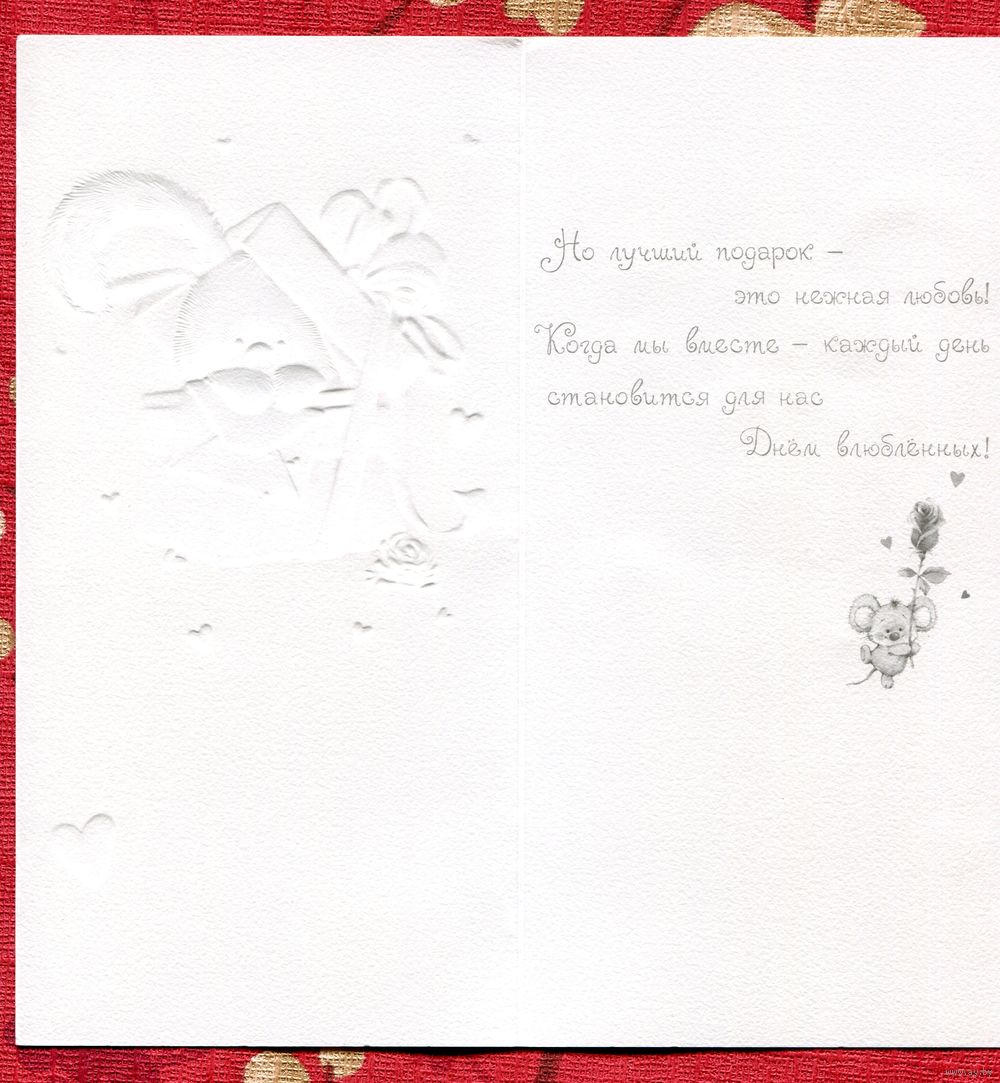 Но лучший подарок –
это нежная любовь!
Когда мы вместе – каждый день
становится для нас
Днём влюблённых!
www.ay.by